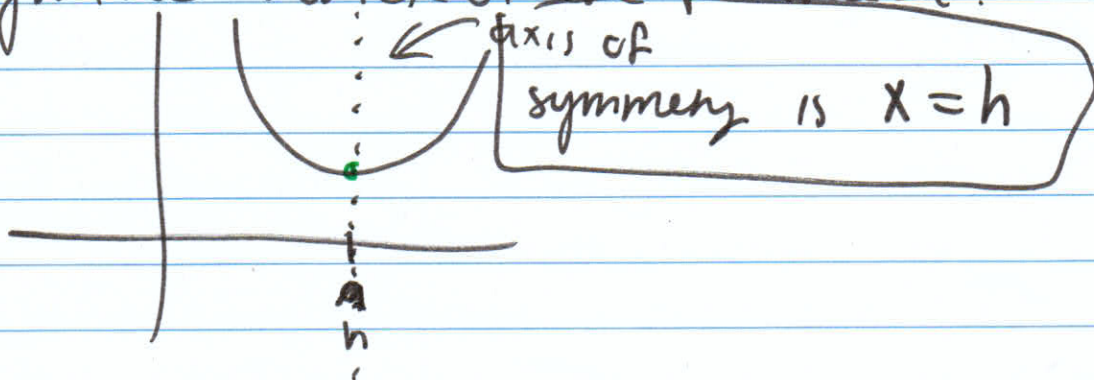 axis of
symmetry is x = h
h